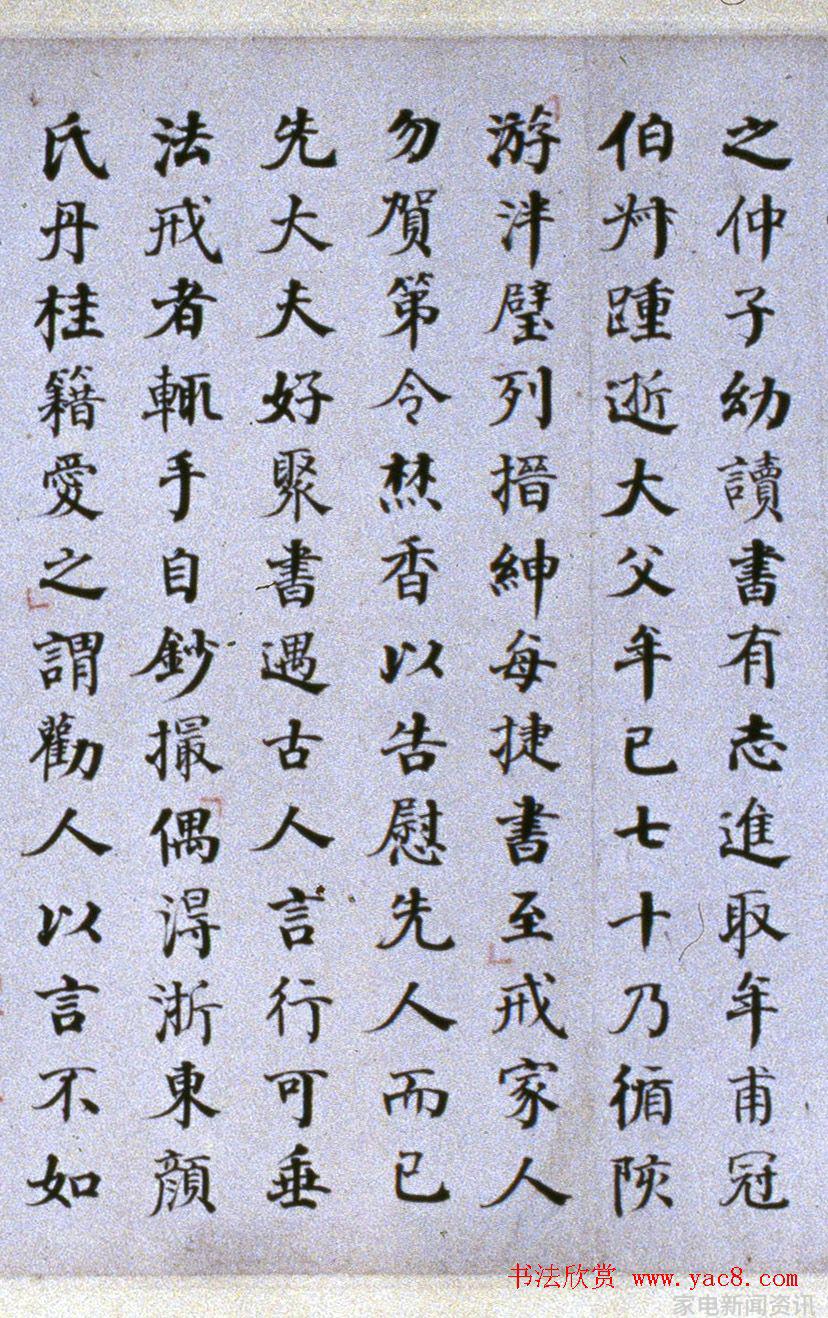 之仲子幼讀書有志進取年甫冠
伯叔踵逝大父年已七十乃循陔
游泮璧列搢紳每捷書至戒家人
勿賀第令焚香以告慰先人而已
先大夫好聚書遇古人言行可垂
法戒者輒手自鈔撮偶得浙東顔
氏丹桂籍愛之謂勸人以言不如
书法欣赏 www.yac8.com
家电新闻资讯